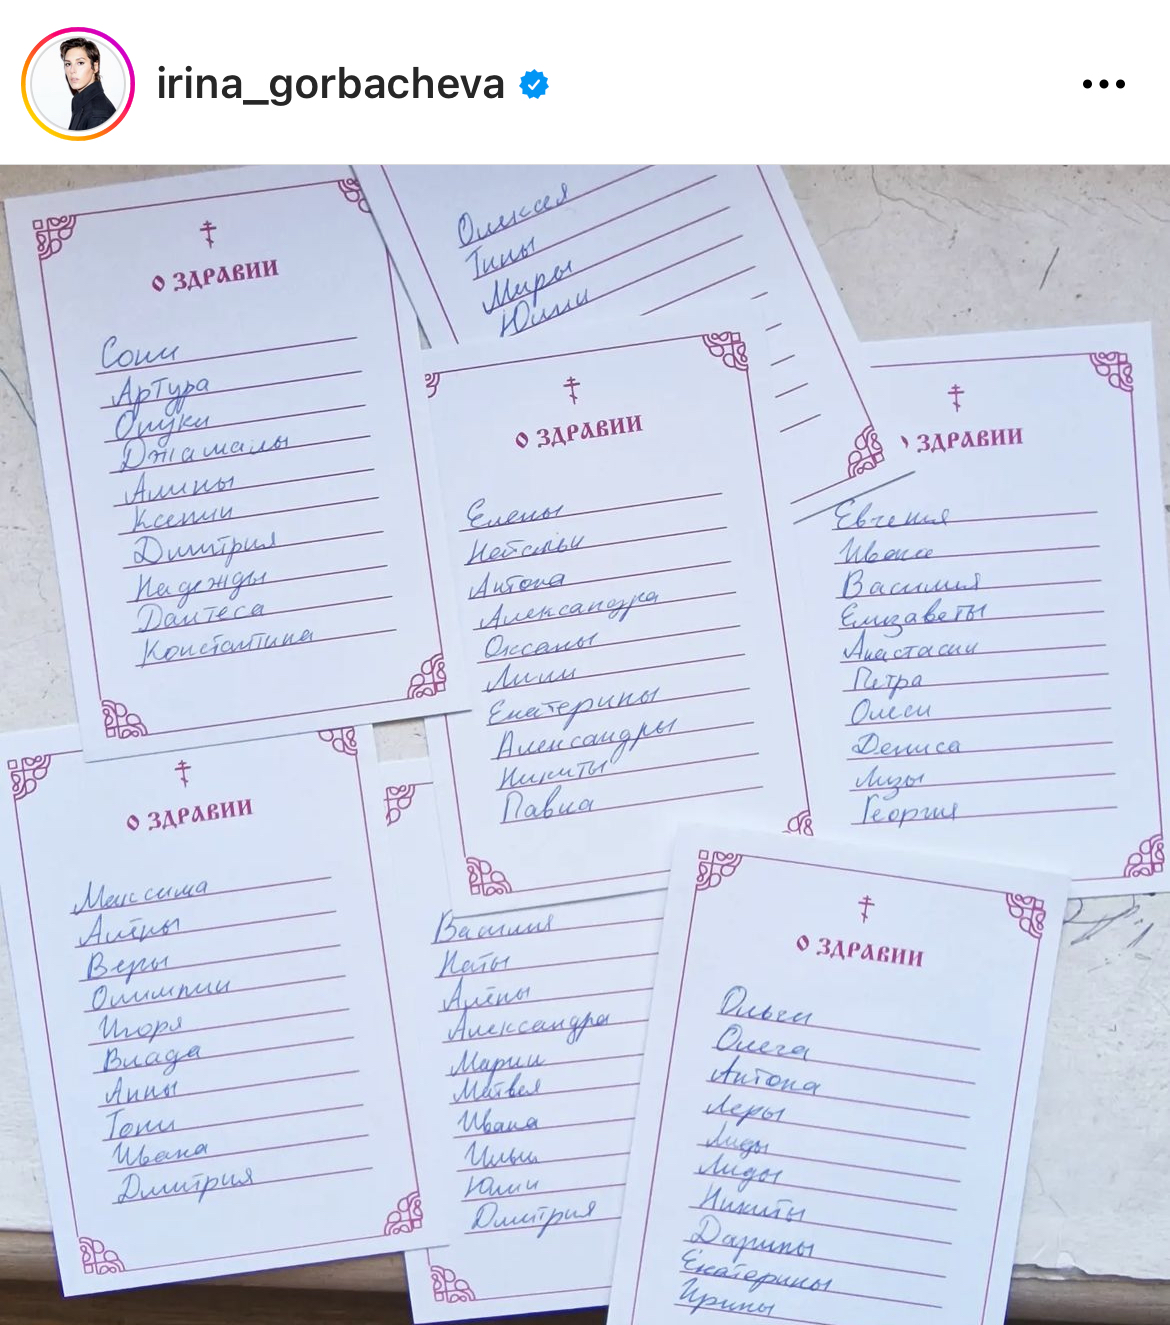 irina_gorbacheva
О ЗДРАВИИ
Сони
Артура
Джамалы
Алины
Ксении
Димитрия
Надежды
Дантеса
Константина
Олексея
Тины
Миры
Юлии
О ЗДРАВИИ
Елены
Натальи
Антона
Александра
Оксаны
Лилии
Екатерины
Александры
Никиты
Павла
О ЗДРАВИИ
Евгения
Ивана
Василия
Елизаветы
Анастасии
Петра
Олеси
Дениса
Лизы
Георгия
О ЗДРАВИИ
Максима
Алёны
Веры
Олимпии
Игоря
Влада
Анны
Тони
Ивана
Димитрия
Василия
Наты
Алёны
Александра
Марии
Матвея
Ивана
Ильи
Юлии
Дмитрия
О ЗДРАВИИ
Ольги
Олега
Антона
Леры
Лиды
Лиды
Никиты
Дарины
Екатерины
Ирины